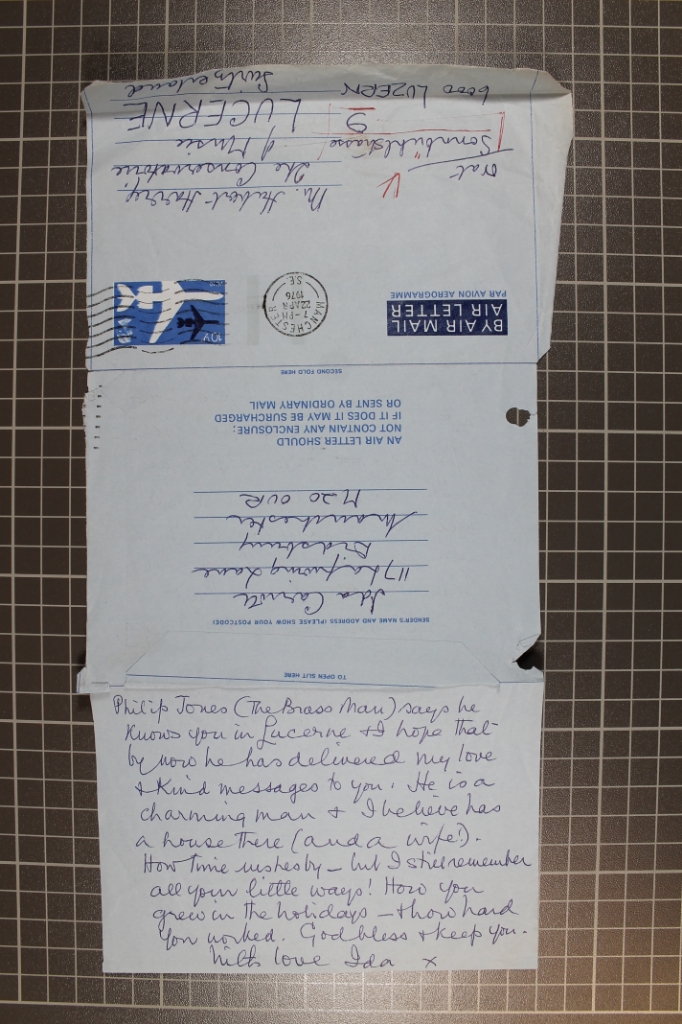 Mr. Hubert Harry,
The Conservatoire
of Music
LUCERNE
Switzerland
Oval
Sonnbühlstrasse
9
6000 LUZERN
10½p
MANCHESTER
7-PM
22 APR
1976
S.E.
BY AIR MAIL
AIR LETTER
PAR AVION AEROGRAMME
SECOND FOLD HERE
AN AIR LETTER SHOULD
NOT CONTAIN ANY ENCLOSURE:
IF IT DOES IT MAY BE SURCHARGED
OR SENT BY ORDINARY MAIL
SENDER'S NAME AND ADDRESS (PLEASE SHOW YOUR POSTCODE)
Ida Carroll
117 Lapwing Lane
Didsbury
Manchester
M20 0UR
TO OPEN SLIT HERE
Philip Jones (The Brass Man) says he
knows you in Lucerne & I hope that
by now he has delivered my love
& kind messages to you. He is a
charming man & I believe has
a house there (and a wife!).
How time rushes by – but I still remember
all your little ways! How you
grew in the holidays – & how hard
you worked. God bless & keep you.
With love Ida x